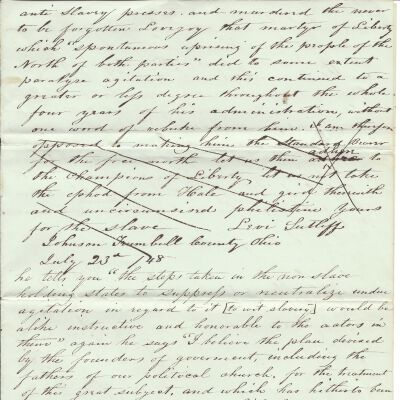 anti Slavery presses. and murdered the never
to be forgotten Lovejoy that martyr of Liberty
which "spontaneous uprising of the people of the
North of both parties" did to some extent
paralyse agitation and this continued to a
greater or less degree throughout the whole
four years of his administration, without
one word of rebuke from him. I am therefore
opposed to making him the standard Bearer
for the free north let us then adhere to
the Champions of Liberty, let us not take
the ephod from Hale and gird therewith
and uncircumsised philistine Yours
for the slave Levi Sutliff
Johnson Trumbull County Ohio
July 23d /48
he tells you "the steps taken in the non slave
holding states to suppress or neutralize undue
agitation in regard to it [to wit slavery] would be
alike instructive and honorable to the actors in
them" again he says "I believe the plan devised
by the founders of goverment, including the
fathers of our political church, for the treatment
of this great subject, and which has hitherto been